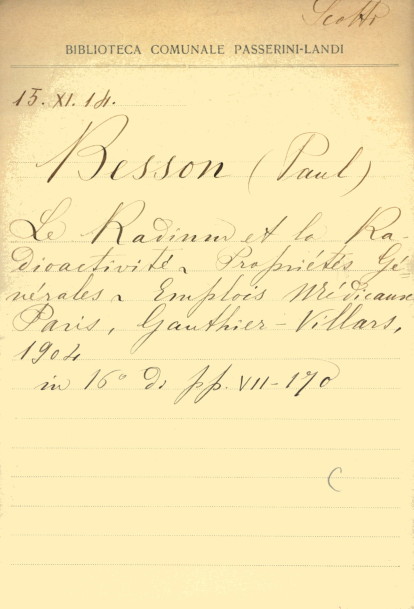 Scotti
BIBLIOTECA COMUNALE PASSERINI-LANDI
15. XI. 14.
Besson (Paul)
Le Radium et la Ra-
dioactivité. Propriétés Gé=
nérales. Emplois Médicaux
Paris, Gauthier-Villars,
1904
in 16° di pp. VII-170